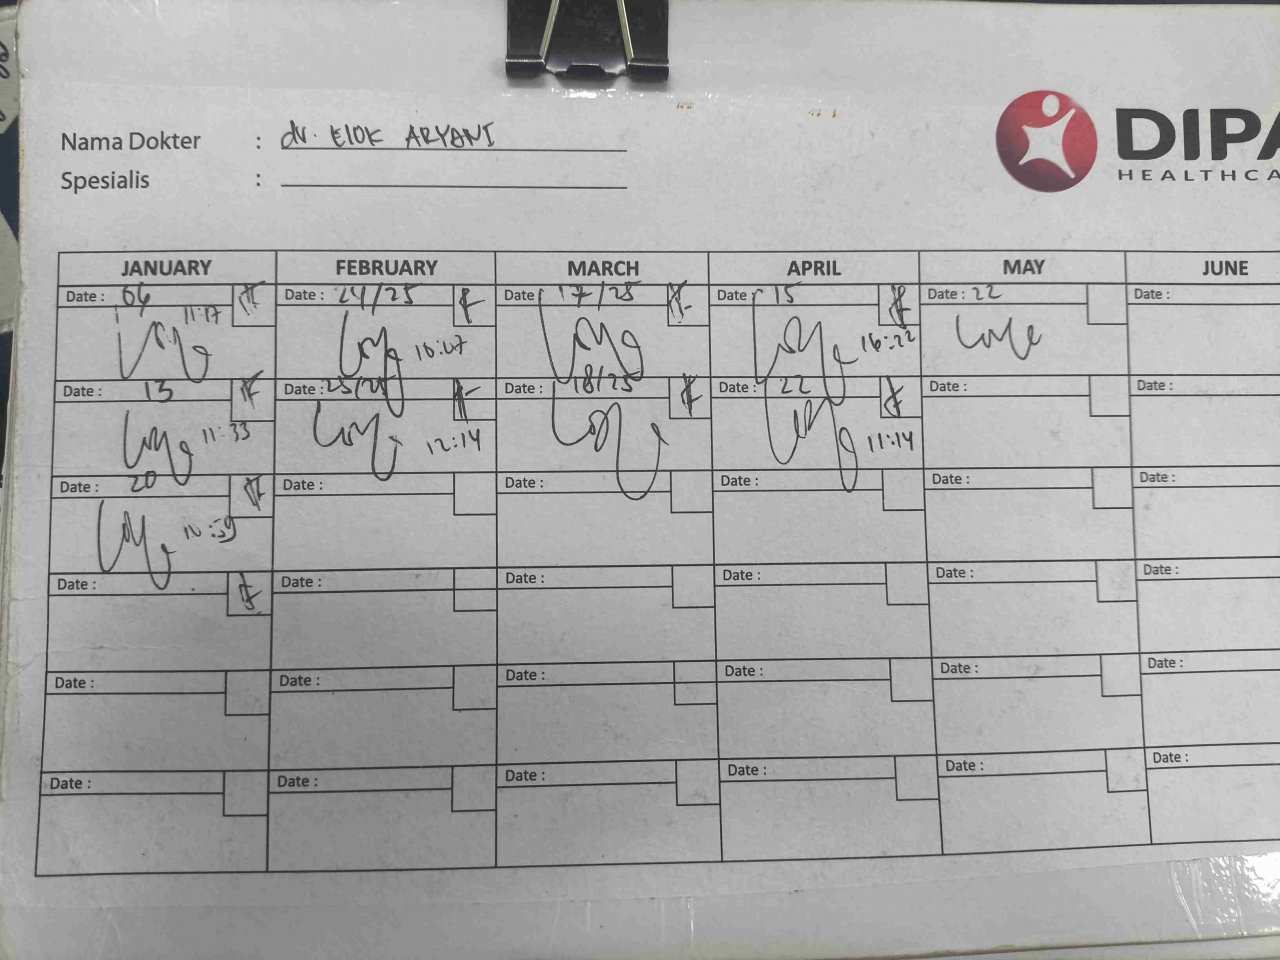 Nama Dokter : dr. ELOK ARYANI
Spesialis :
DIPA
HEALTHCA
JANUARY FEBRUARY MARCH APRIL MAY JUNE
Date : 06 Date : 24/25 Date : 17/25 Date : 15 Date : 22 Date :
11:17 16:22
Date : 13 Date : 25/25 Date : 18/25 Date : 22 Date : Date :
11:33 12:14 11:14
Date : 20 Date : Date : Date : Date : Date :
10:59
Date : Date : Date : Date : Date : Date :
Date : Date : Date : Date : Date : Date :
Date : Date : Date : Date : Date : Date :